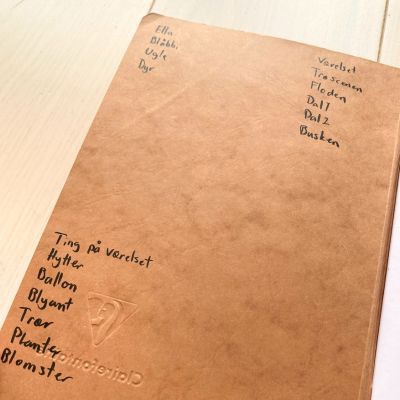 Ella
Blåbbi
Ugle
Dyr
Værelset
Træscenen
Floden
Dal 1
Dal 2
Busken
Ting på værelset
Hytter
Ballon
Blyant
Træer
Planter
Blomster
Clairefontaine